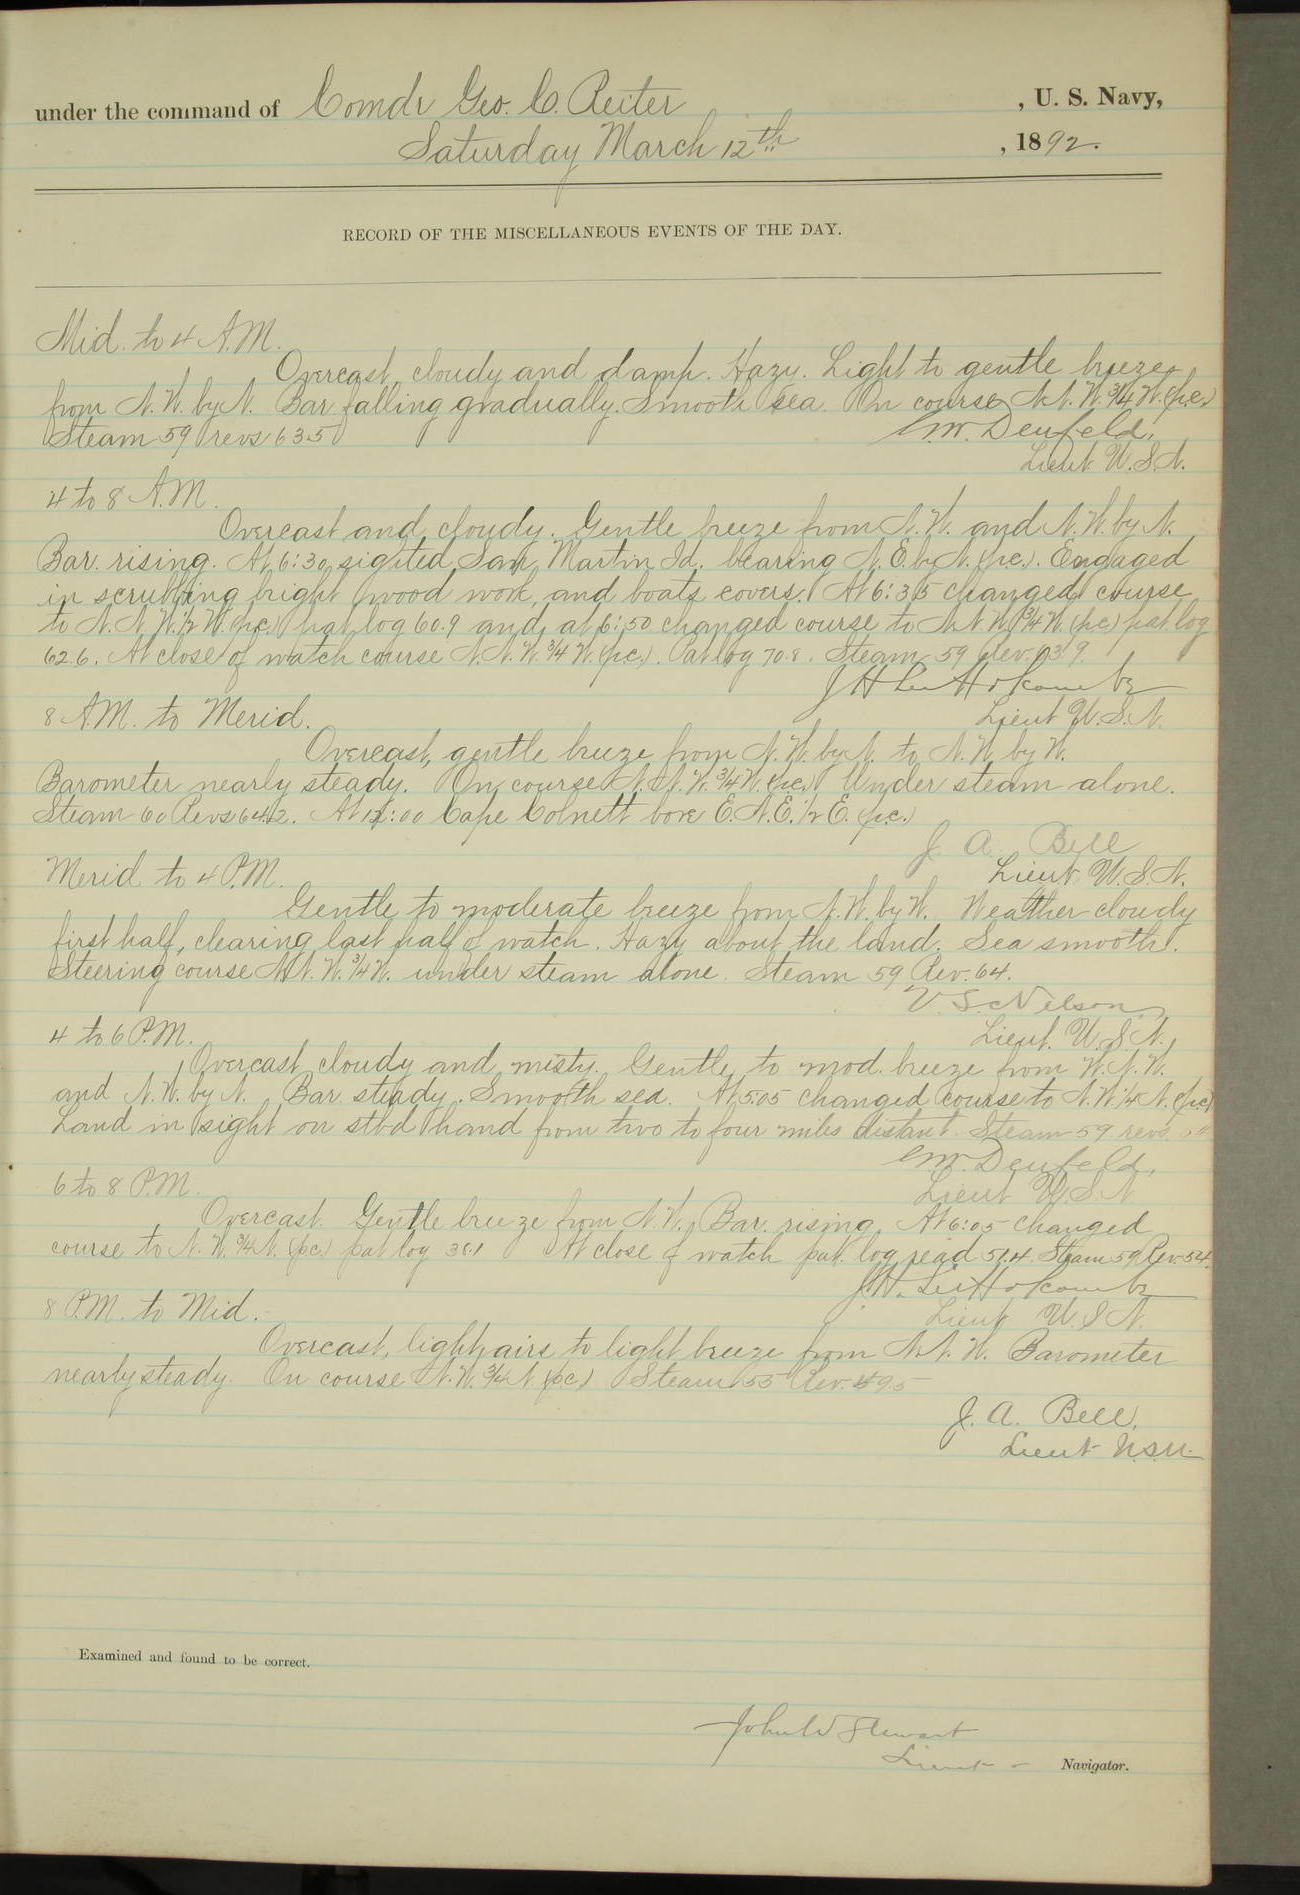 under the command of Comdr Geo. C. Reiter , U. S. Navy,
Saturday March 12th , 1892.
RECORD OF THE MISCELLANEOUS EVENTS OF THE DAY.
Mid. to 4 A.M.
Overcast, cloudy and damp. Hazy. Light to gentle breeze
from N.W. by N. Bar falling gradually. Smooth sea. On course N.N.W. 3/4 W. (p.c.)
Steam 59 revs 63.5
C.W. Deufeld,
Lieut U.S.N.
4 to 8 A.M.
Overcast and cloudy. Gentle breeze from N.W. and N.W. by N.
Bar. rising. At 6:30 sighted San Martin Id. bearing N.E. by N. (p.c.). Engaged
in scrubbing bright wood work, and boats covers. At 6:35 changed course
to N.N.W. 1/2 W. (p.c.) pat log 60.9 and at 6:50 changed course to N.N.W. 3/4 W. (p.c.) pat log
62.6. At close of watch course N.N.W. 3/4 W. (p.c.). Pat log 70.8. Steam 59 Rev. 63.9.
J H Lee Holcombe
Lieut U.S.N.
8 A.M. to Merid.
Overcast, gentle breeze from N.W. by N. to N.W. by W.
Barometer nearly steady. On course N.N.W. 3/4 W. (p.c.) Under steam alone.
Steam 60 Revs 64.2. At 12:00 Cape Colnett bore E.N.E. 1/2 E. (p.c.)
J. A. Bell
Lieut U.S.N.
Merid to 4 P.M.
Gentle to moderate breeze from N.W. by W. Weather cloudy
first half, clearing last half of watch. Hazy about the land. Sea smooth.
Steering course N.N.W. 3/4 W. under steam alone. Steam 59 Rev. 64.
V. S. Nelson,
Lieut. U.S.N.
4 to 6 P.M.
Overcast cloudy and misty. Gentle to mod. breeze from W.N.W.
and N.W. by N. Bar steady. Smooth sea. At 5:05 changed course to N.W. 1/4 N. (p.c.)
Land in sight on stbd hand from two to four miles distant. Steam 59 revs
C.W. Deufeld,
Lieut U.S.N
6 to 8 P.M.
Overcast. Gentle breeze from N.W. Bar. rising. At 6:05 changed
course to N.W. 3/4 N. (p.c.) pat log 38.1 At close of watch pat. log read 51.4. Steam 59 Rev. 54.
J.H. Lee Holcombe
Lieut U.S.N.
8 P.M. to Mid.
Overcast, light airs to light breeze from N.N.W. Barometer
nearly steady. On course N.W. 3/4 N (p.c.) Steam 55 Rev. 49.5
J. A. Bell,
Lieut U.S.N.
Examined and found to be correct.
John W Stewart
Lieut - Navigator.